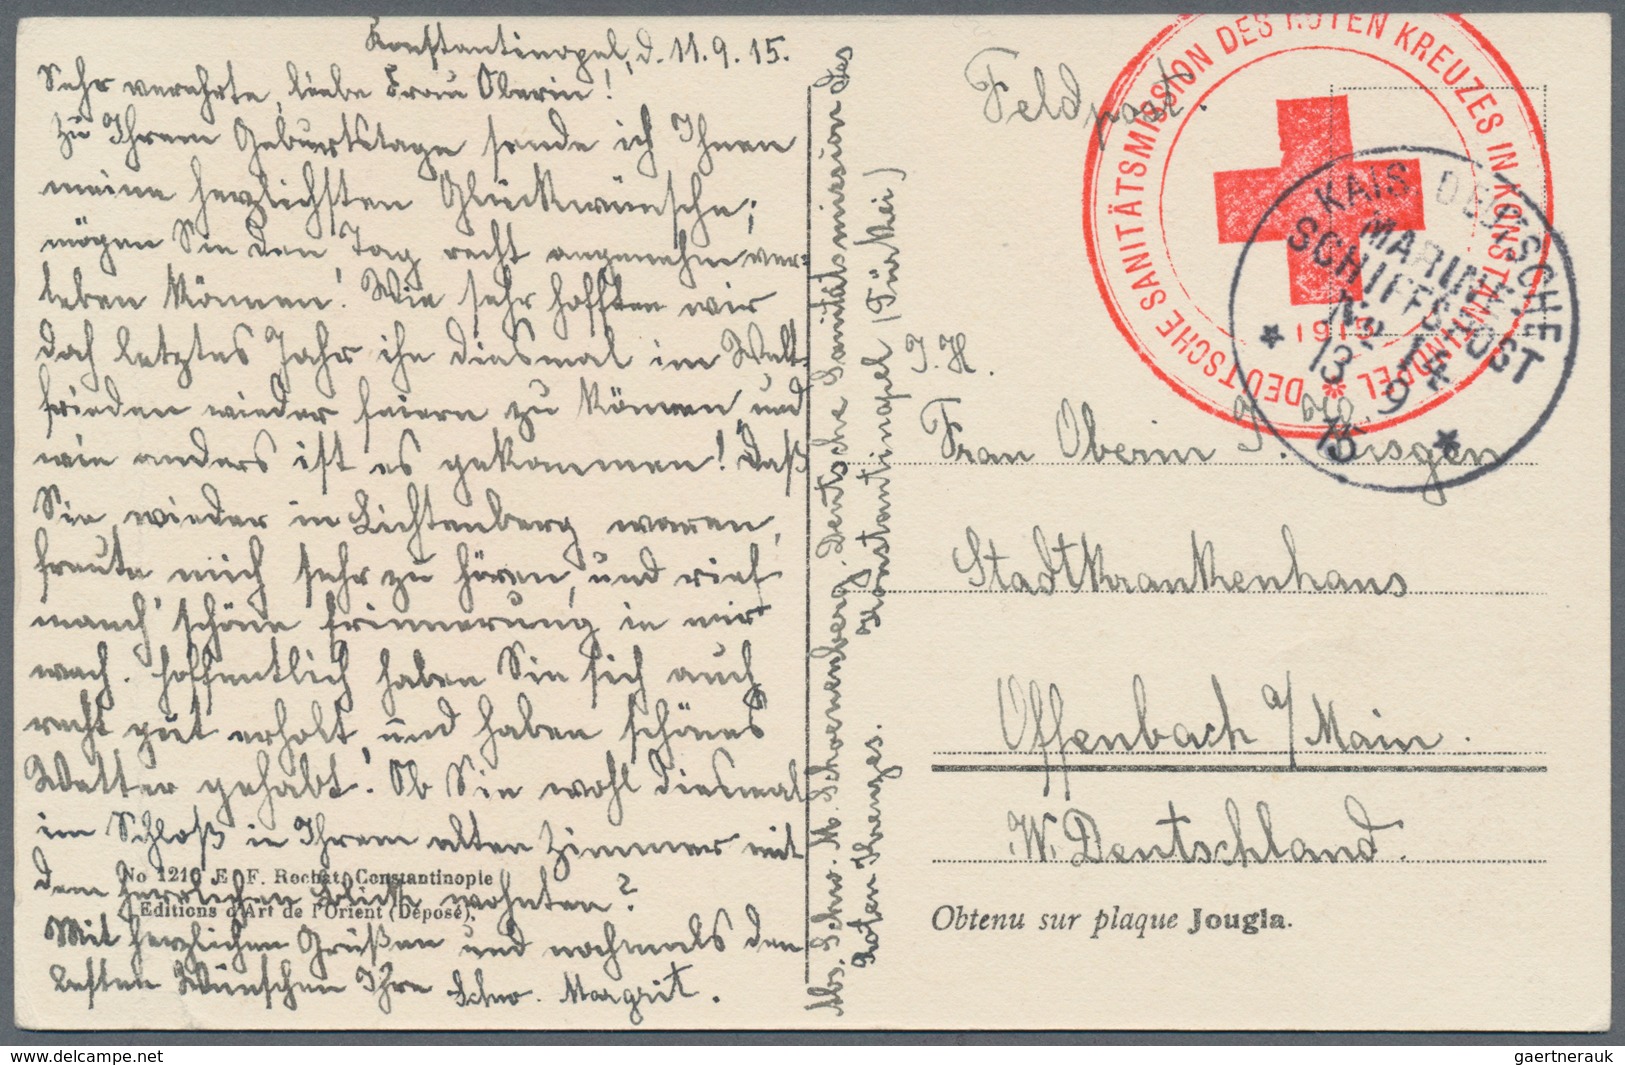 Konstantinopel, d. 11.9.15.
Sehr verehrte, liebe Frau Oberin!
Zu Ihrem Geburtstage sende ich Ihnen
meine herzlichsten Glückwünsche;
mögen Sie den Tag recht angenehm ver-
leben können! Wie sehr hofften wir
doch letztes Jahr ihn diesmal im Welt-
frieden wieder feiern zu können, und
wie anders ist es gekommen! Daß
Sie wieder in Lichtenberg waren,
freute mich sehr zu hören, und rief
manch' schöne Erinnerung in mir
wach. Hoffentlich haben Sie sich auch
recht gut erholt, und haben schönes
Wetter gehabt! Ob Sie wohl diesmal
im Schloß in Ihrem alten Zimmer mit
dem herrlichen Blick wohnten?
Mit herzlichen Grüßen und nochmals den
besten Wünschen Ihre Schw. Margrit.
No 1216 E. F. Rochat, Constantinople
Editions d'Art de l'Orient (Déposé).
Abs. Schw. M. Schoenenberg. Deutsche Sanitätsmission des
Roten Kreuzes. Konstantinopel (Türkei)
Feldpost.
DEUTSCHE SANITÄTSMISSION DES ROTEN KREUZES IN KONSTANTINOPEL
1915
KAIS. DEUTSCHE
MARINE-
SCHIFFSPOST
No 14
13 9
15
I. H.
Frau Oberin
Stadtkrankenhaus
Offenbach a/Main.
W. Deutschland.
Obtenu sur plaque Jougla.
gaertnerauk @ delcampe.net
gaertnerauk